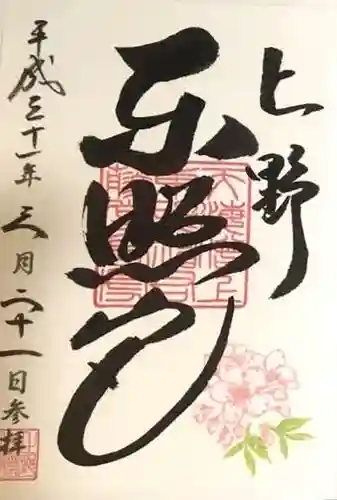 上野
東照宮
平成三十一年三月二十一日参拝